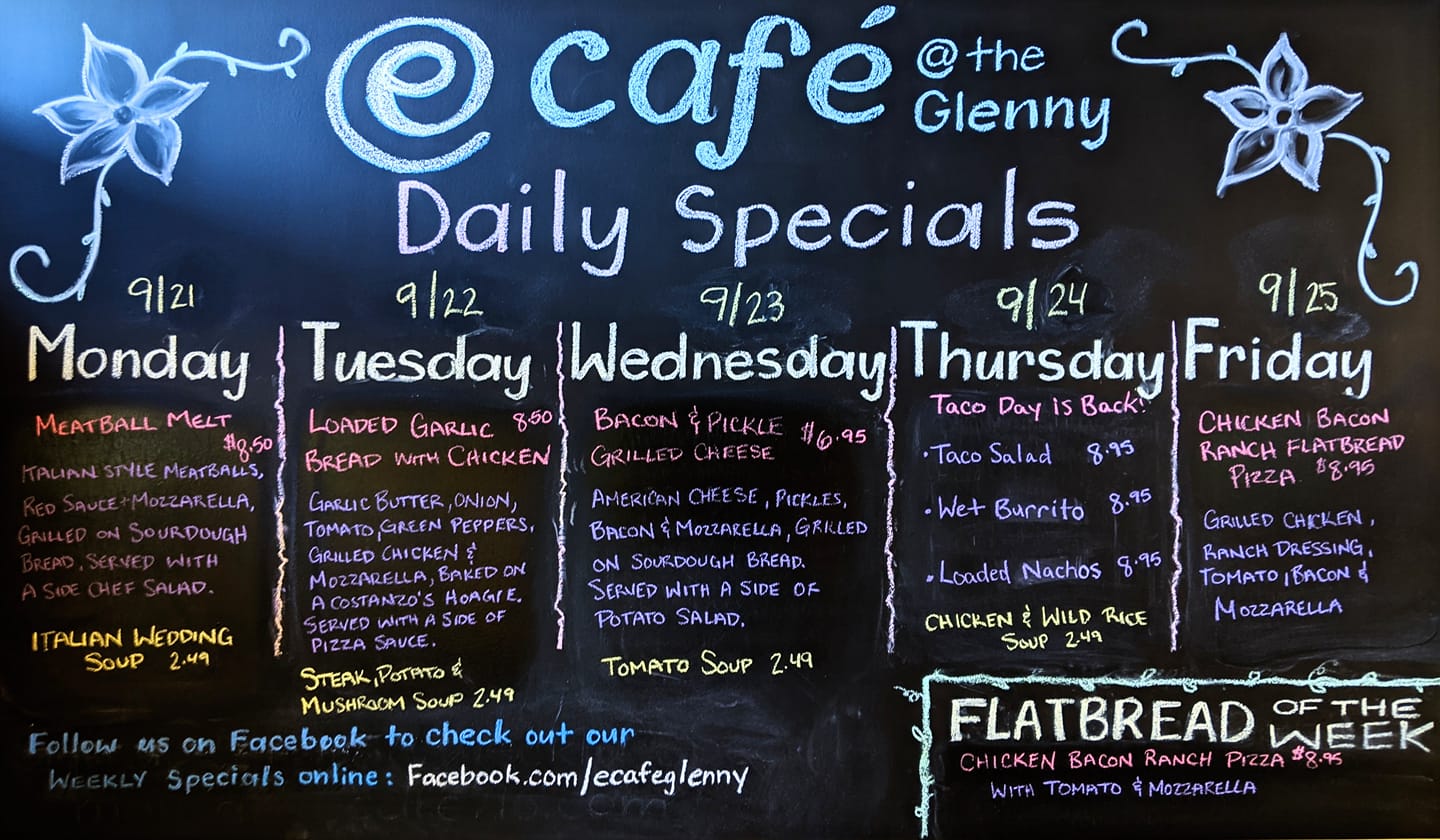 e café @ the
Glenny
Daily Specials
9/21
Monday
MEATBALL MELT
$8.50
ITALIAN STYLE MEATBALLS,
RED SAUCE + MOZZARELLA,
GRILLED ON SOURDOUGH
BREAD, SERVED WITH
A SIDE CHEF SALAD.
ITALIAN WEDDING
SOUP 2.49
9/22
Tuesday
LOADED GARLIC 8.50
BREAD WITH CHICKEN
GARLIC BUTTER, ONION,
TOMATO, GREEN PEPPERS,
GRILLED CHICKEN &
MOZZARELLA, BAKED ON
A COSTANZO'S HOAGIE.
SERVED WITH A SIDE OF
PIZZA SAUCE.
STEAK, POTATO &
MUSHROOM SOUP 2.49
9/23
Wednesday
BACON & PICKLE $6.95
GRILLED CHEESE
AMERICAN CHEESE, PICKLES,
BACON & MOZZARELLA, GRILLED
ON SOURDOUGH BREAD.
SERVED WITH A SIDE OF
POTATO SALAD.
TOMATO SOUP 2.49
9/24
Thursday
Taco Day is Back!
• Taco Salad 8.95
• Wet Burrito 8.95
• Loaded Nachos 8.95
CHICKEN & WILD RICE
SOUP 2.49
9/25
Friday
CHICKEN BACON
RANCH FLATBREAD
PIZZA $8.95
GRILLED CHICKEN,
RANCH DRESSING,
TOMATO, BACON &
MOZZARELLA
Follow us on Facebook to check out our
WEEKLY Specials online: Facebook.com/ecafeglenny
FLATBREAD OF THE
WEEK
CHICKEN BACON RANCH PIZZA $8.95
WITH TOMATO & MOZZARELLA